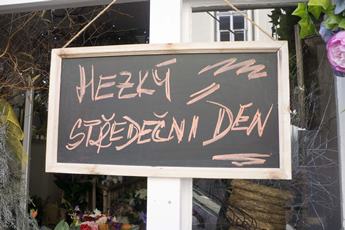 HEZKÝ
STŘEDEČNI DEN